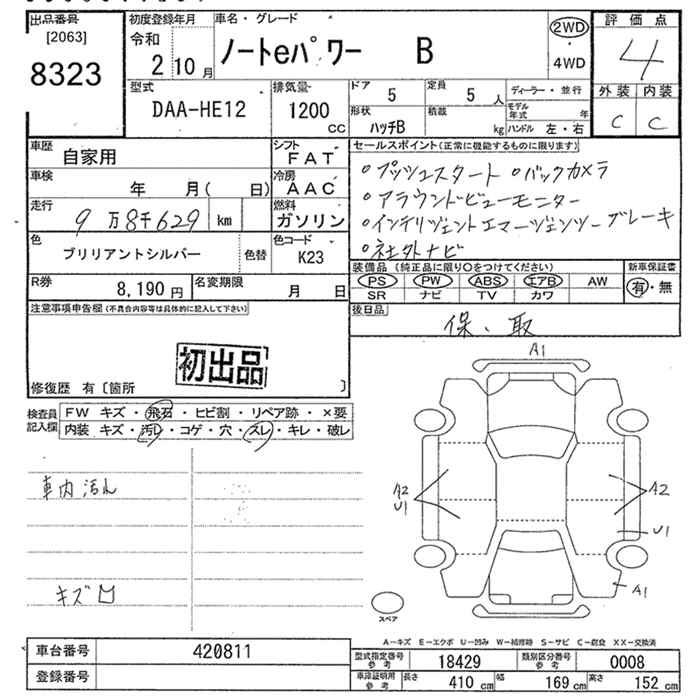 出品番号 [2063] 8323
初度登録年月 令和 2 10月
車名・グレード ノートeパワー B
2WD ・ 4WD
評価点 4
外装 内装
C C
型式 DAA-HE12
排気量 1200 CC
ドア 5 定員 5 人
形状 ハッチB 積載 kg
ディーラー・並行
モデル年式 年
ハンドル 左・右
車歴 自家用
シフト FAT
車検 年 月( 日)
冷房 AAC
走行 9万8千629 km
燃料 ガソリン
色 ブリリアントシルバー 色替
色コード K23
R券 8,190円 名変期限 月 日
セールスポイント(正常に機能するものに限ります)
・プッシュスタート ・バックカメラ
・アラウンドビューモニター
・インテリジェントエマージェンシーブレーキ
・社外ナビ
装備品 (純正品に限り○をつけてください) 新車保証書
PS PW ABS エアB AW 有・無
SR ナビ TV カワ
後日品 保、取
注意事項申告欄(不具合内容等は具体的に記入して下さい)
初出品
修復歴 有〔箇所 〕
検査員記入欄 FW キズ・飛石・ヒビ割・リペア跡・×要
内装 キズ・汚レ・コゲ・穴・スレ・キレ・破レ
車内汚れ
キズ凹
A1
A2
U1
A2
U1
A1
スペア
A−キズ E−エクボ U−凹み W−補修跡 S−サビ C−腐食 XX−交換済
車台番号 420811
登録番号
型式指定番号参考 18429 類別区分番号参考 0008
車庫証明用参考 長さ 410 cm 幅 169 cm 高さ 152 cm